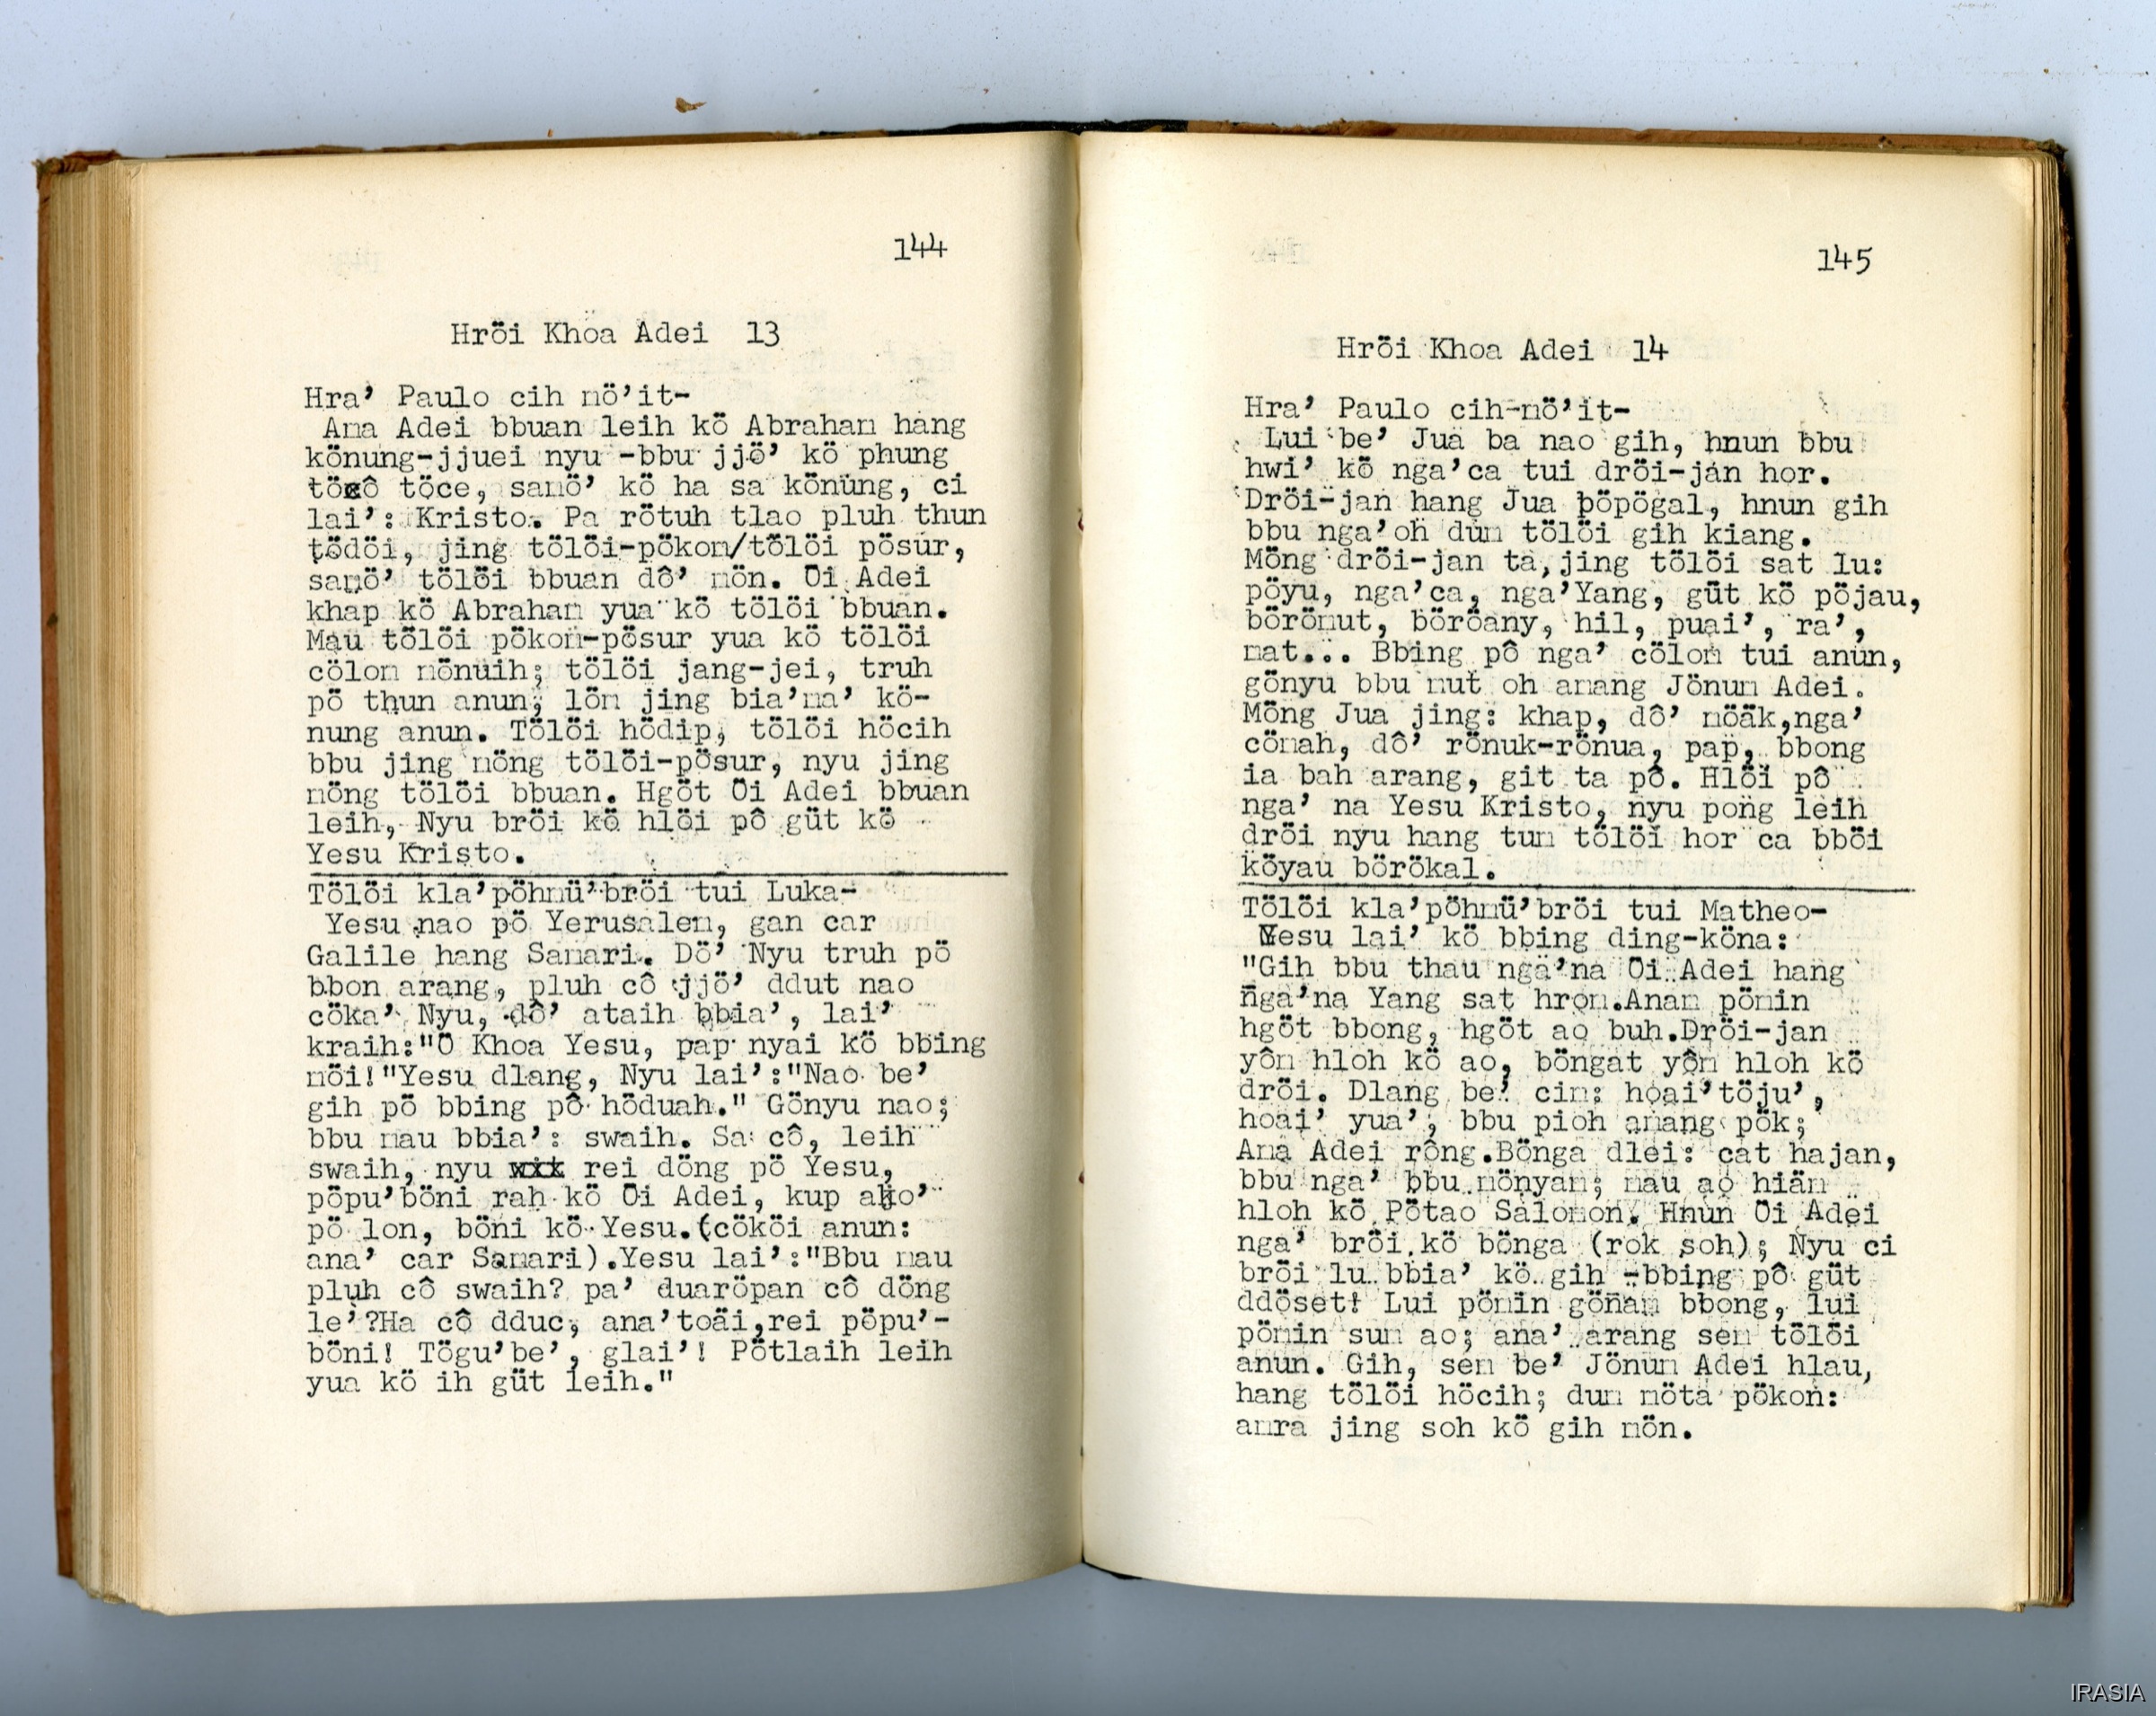 144
Hröi Khoa Adei 13
Hra’ Paulo cih mö’it-
Ama Adei bbuan leih kö Abraham hang
könung-jjuei nyu -bbu jjö’ kö phung
töcô töce, samö’ kö ha sa könung, ci
lai’: Kristo. Pa rötuh tlao pluh thun
tödöi, jing tölöi-pökom/tölöi pösur,
samö’ tölöi bbuan dô’ mön. Öi Adei
khap kö Abraham yua kö tölöi bbuan.
Mau tölöi pökom-pösur yua kö tölöi
cölom mönuih; tölöi jang-jei, truh
pö thun anun; löm jing bia’ma’ kö-
nung anun. Tölöi hödip, tölöi höcih
bbu jing möng tölöi-pösur, nyu jing
möng tölöi bbuan. Hgöt Öi Adei bbuan
leih, Nyu bröi kö hlöi pô güt kö
Yesu Kristo.
Tölöi kla’pöhmü’bröi tui Luka-
Yesu nao pö Yerusalem, gan car
Galile hang Samari. Dö’ Nyu truh pö
bbon arang, pluh cô jjö’ ddut nao
cöka’ Nyu, dô’ ataih bbia’, lai’
kraih:"Ö Khoa Yesu, pap nyai kö bbing
möi!"Yesu dlang, Nyu lai’:"Nao be’
gih pö bbing pô höduah." Gönyu nao;
bbu mau bbia’: swaih. Sa cô, leih
swaih, nyu rei döng pö Yesu,
pöpu’böni rah kö Öi Adei, kup ako’
pö lon, böni kö Yesu.(cököi anun:
ana’ car Samari).Yesu lai’:"Bbu mau
pluh cô swaih? pa’ duaröpan cô döng
le’?Ha cô dduc, ana’toäi,rei pöpu’-
böni! Tögu’be’, glai’! Pötlaih leih
yua kö ih güt leih."
145
Hröi Khoa Adei 14
Hra’ Paulo cih mö’it-
Lui be’ Jua ba nao gih, hnun bbu
hwi’ kö nga’ca tui dröi-jan hor.
Dröi-jan hang Jua pöpögal, hnun gih
bbu nga’oh dum tölöi gih kiang.
Möng dröi-jan ta,jing tölöi sat lu:
pöyu, nga’ca, nga’Yang, güt kö pöjau,
börömut, böröany, hil, puai’, ra’,
mat... Bbing pô nga’ cölom tui anun,
gönyu bbu mut oh amang Jönum Adei.
Möng Jua jing: khap, dô’ möäk,nga’
cömah, dô’ rönuk-rönua, pap, bbong
ia bah arang, git ta pô. Hlöi pô
nga’ na Yesu Kristo, nyu pong leih
dröi nyu hang tum tölöi hor ca bböi
köyau börökal.
Tölöi kla’pöhmü’bröi tui Matheo-
Yesu lai’ kö bbing ding-köna:
"Gih bbu thau nga’na Öi Adei hang
nga’na Yang sat hrom.Anam pömin
hgöt bbong, hgöt ao buh.Dröi-jan
yôm hloh kö ao, böngat yôm hloh kö
dröi. Dlang be’ cim: hoai’töju’,
hoai’ yua’; bbu pioh amang pök;
Ama Adei rông.Bönga dlei: cat hajan,
bbu nga’ bbu mönyam; mau ao hiäm
hloh kö Pötao Salomon. Hnun Öi Adei
nga’ bröi kö bönga (rok soh); Nyu ci
bröi lu bbia’ kö gih -bbing pô güt
ddöset! Lui pömin gönam bbong, lui
pömin sum ao; ana’ arang sem tölöi
anun. Gih, sem be’ Jönum Adei hlau,
hang tölöi höcih; dum möta pökon:
amra jing soh kö gih mön.
IRASIA